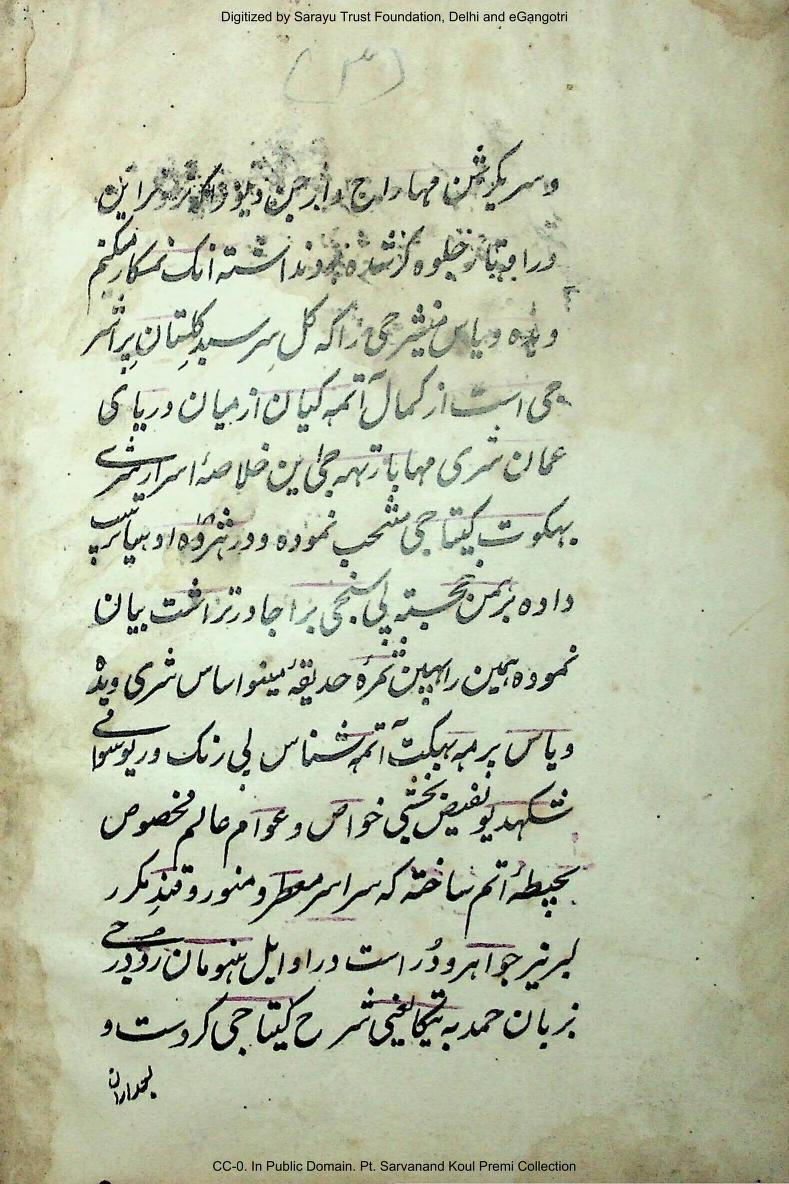 Digitized by Sarayu Trust Foundation, Delhi and eGangotri
(٣)
و سریکرشن مهاراج و ارجن
جلوه گر شده اند نمسکار میکنم
و بیاس جی را که گل سر سبد گلستان پراشر
جی است از کمال آتمه گیان از میان دریای
عمان شری مهابارتهه جی این خلاصهٔ اسرار شری
بهگوت گیتا جی منتخب نموده و در
داده برهمن خجسته پی سنجی براجا درتراشت بیان
نموده همین را بهین ثمرهٔ حدیقهٔ مینو اساس شری وید
ویاس پرمه بهگت آتمه شناس بی رنگ
سکهدیو بفیض بخشی خواص و عوام عالم مخصوص
بحیطهٔ اتم ساخته که سراسر معطر و منور و قند مکرر
لبریز جواهر و دُر است در اوایل هنومان رودر جی
بزبان حمد به تیکا یعنی شرح گیتا جی کردست و
بعد از ان
CC-0. In Public Domain. Pt. Sarvanand Koul Premi Collection